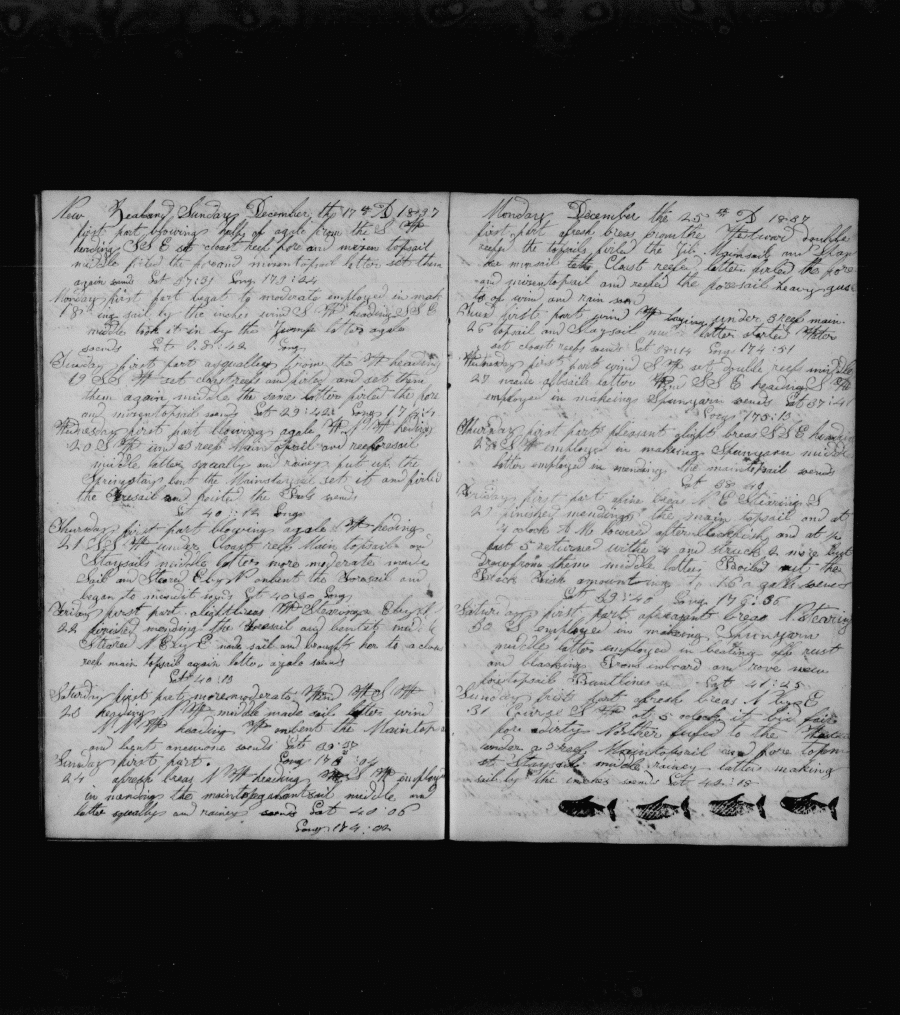 New Zealand Sunday December the 17th D 1837
first part blowing half of agale from the S W
heading S S E set cloast reefs fore and mizen topsail
middle firled the fore and mizentopsail latter set them
again sends Lat 37:31 Long 179:24
Monday first part legat to moderate employed in mak
18 ing sail by the inches wind S W heading S S E
middle took it in by the latter agale
sends Lat 38:42 Long
first part asqualley from the W heading
19 S S W set cloast reefs and firled and set them
them again middle the same latter firled the fore
and mizentopsail sends Lat 29:42 Long
Wednesday first part blowing agale W heading
20 S W under 3 reef Main topsail and reef foresail
middle latter squally and rainey put up the
Springstay bent the Mainstaysail set it and firled
the foresail and pointed the sends
Lat 40:12 Long
Thursday first part blowing agale W heding
21 S S W under Cloast reefs Main topsail and
Staysails middle latter more moderate made
Sail and Steared E by N onbent the Foresail and
began to mend it sends Lat 40:30 Long
Friday first part alight breas W Stearing E by N
22 finished mending the foresail and bent it middle
Steared N E by E made sail and brought her to a close
reef main topsail again latter agale sends
Lat 40:13
Saturday first part more moderate Wind W S W
23 heading N W middle made sail latter wind
N N W heading W onbent the Maintop
and bent anewone sends Lat 39:37
Sunday first part. Long
24 afresh breas N W heading W S W employ
in mending the maintopgalantsail middle and
latter squally and rainey sends Lat 40:06
Long 174:02
Monday December the 25th D 1837
first part afresh breas from the Westward double
reefd the topsails firled the Jib Mainsail and
the mizsail Cloast reefed latter firled the fore
and mizentopsail and reefed the foresail heavy gus
ts of win and rain sen
first part wind W laying under 3 reef main
26 topsail and Staysail mid latter started Water
set cloast reefs sends Lat 38:14 Long 174:51
Wednesday first part wind S W set double reefs middle
27 made allsaile latter Wind S S E heading S W
employed in makeing Spunyarn sends Lat 37:41
Long 173:13
Thursday first part pleasent alight breas S S E heading
28 S W employed in making Spunyarn middle
latter employed in mending the maintopsail sends
Lat 38:49
Friday first part afine breas N E Stearing S
29 finished mending the main topsail and at
4 oclock P M lowered after blackfish and at ½
past 5 returned withe 4 and struck 2 more but
Drew from them middle latter Boiled out the
Black Fish amounting to galls sends
Lat 39:40 Long 176:36
Saturday first part apleasent breas N Stearing
30 S employed in making Spunyarn
middle latter employed in beating off rust
and blacking Irons inboard and rove new
foretopsail Buntlines Lat 41:25
Sunday first part afresh breas N by E
31 Course S W at 5 oclock it bid faile
for adirty Norther luffed to the
under a 3 reef maintopsail and fore topm
st Staysail middle rainey latter making
sail by the inches send Lat 42:13